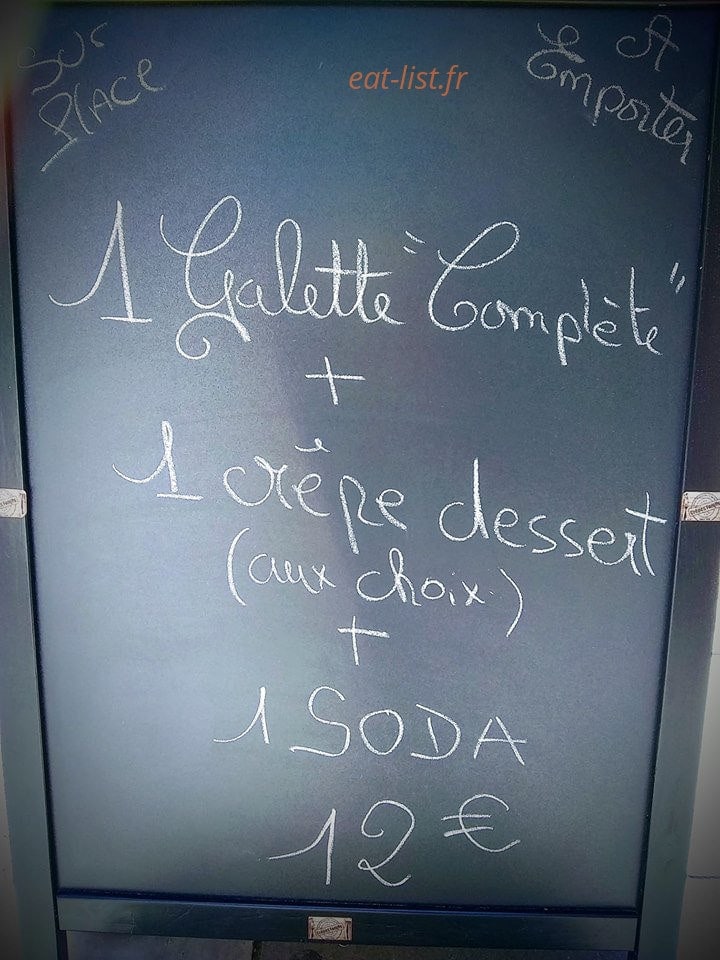 Sur
Place
eat-list.fr
& A
Emporter
1 Galette "Complète"
+
1 crêpe dessert
(aux choix)
+
1 SODA
12 €